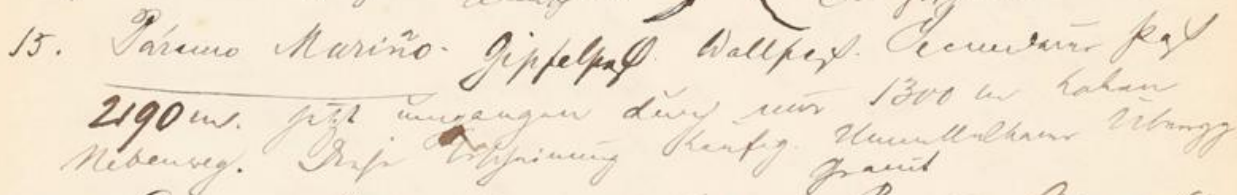 15. Páramo Mariño. Gipfelpaß. Wallpaß. Secundärer Paß
2190 m. jetzt umgangen durch nur 1300 m hohen
Nebenweg. Diese Erscheinung häufig. Übergang
Granit